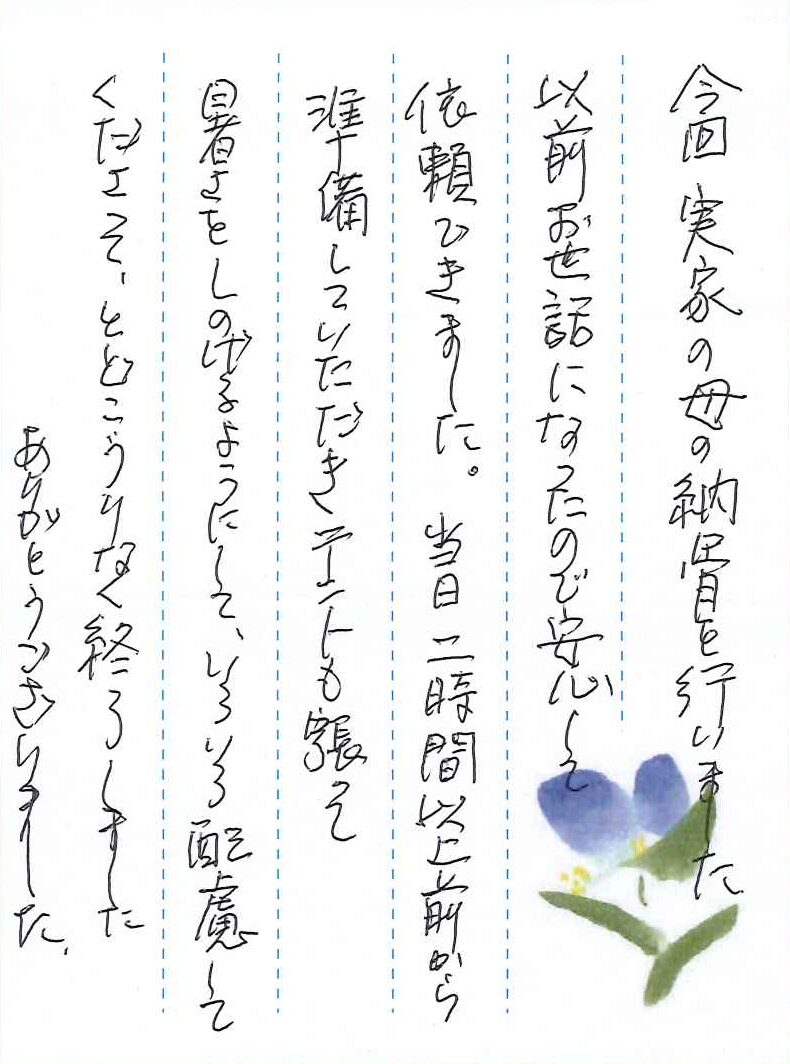 今回 実家の母の納骨を行いました
以前お世話になったので安心して
依頼できました。 当日二時間以上前から
準備していただきテントも張って
暑さをしのげるようにして、いろいろ配慮して
くださって、とどこうりなく終りしました
ありがとうございました。